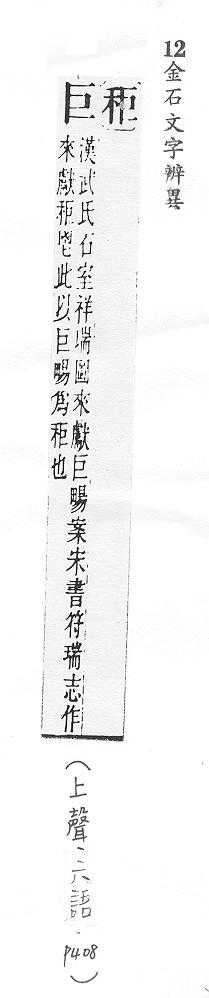 12金石文字辨異
秬
巨
漢武氏石室祥瑞圖來獻巨暘案宋書符瑞志作
來獻秬鬯此以巨暘爲秬也
（上聲·六語·P408）